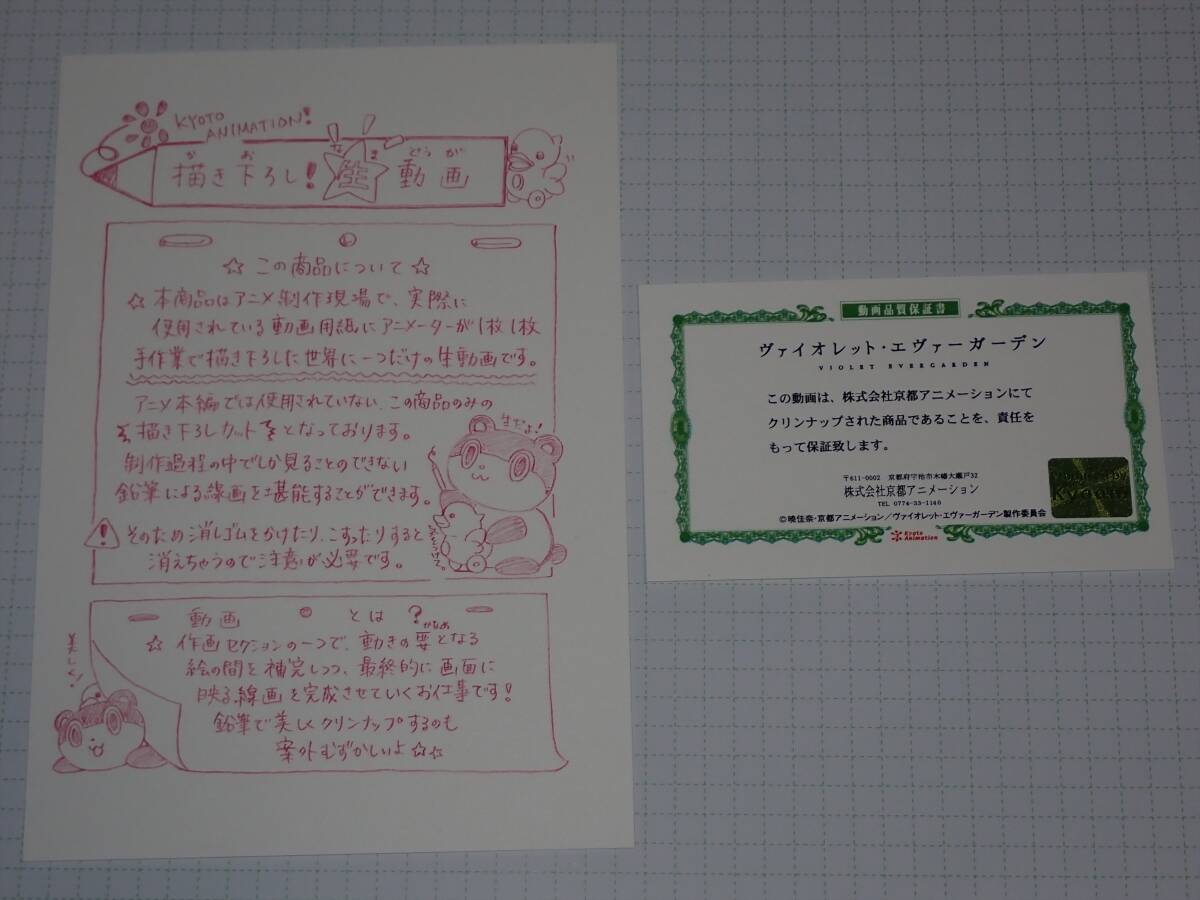 KYOTO
ANIMATION!
か お な ま どう が
描き下ろし! 生 動画
☆ この商品について ☆
☆ 本商品はアニメ制作現場で、実際に
使用されている動画用紙にアニメーターが1枚1枚
手作業で描き下ろした世界に一つだけの生動画です。
アニメ本編では使用されていない、この商品のみの
描き下ろしカットとなっております。
生だよ!
制作過程の中でしか見ることのできない
鉛筆による線画を堪能することができます。
そのため消しゴムをかけたり、こすったりすると
消えちゃうので注意が必要です。
気をつけて。
動画 とは?
かなめ
☆ 作画セクションの一つで、動きの要となる
絵の間を補完しつつ、最終的に画面に
映る線画を完成させていくお仕事です!
鉛筆で美しくクリンナップするのも
案外むずかしいよ☆☆
美しく!
動画品質保証書
ヴァイオレット・エヴァーガーデン
VIOLET EVERGARDEN
この動画は、株式会社京都アニメーションにて
クリンナップされた商品であることを、責任を
もって保証致します。
〒611-0002 京都府宇治市木幡大瀬戸32
株式会社京都アニメーション
TEL 0774-33-1140
©暁佳奈・京都アニメーション/ヴァイオレット・エヴァーガーデン製作委員会
Kyoto
Animation